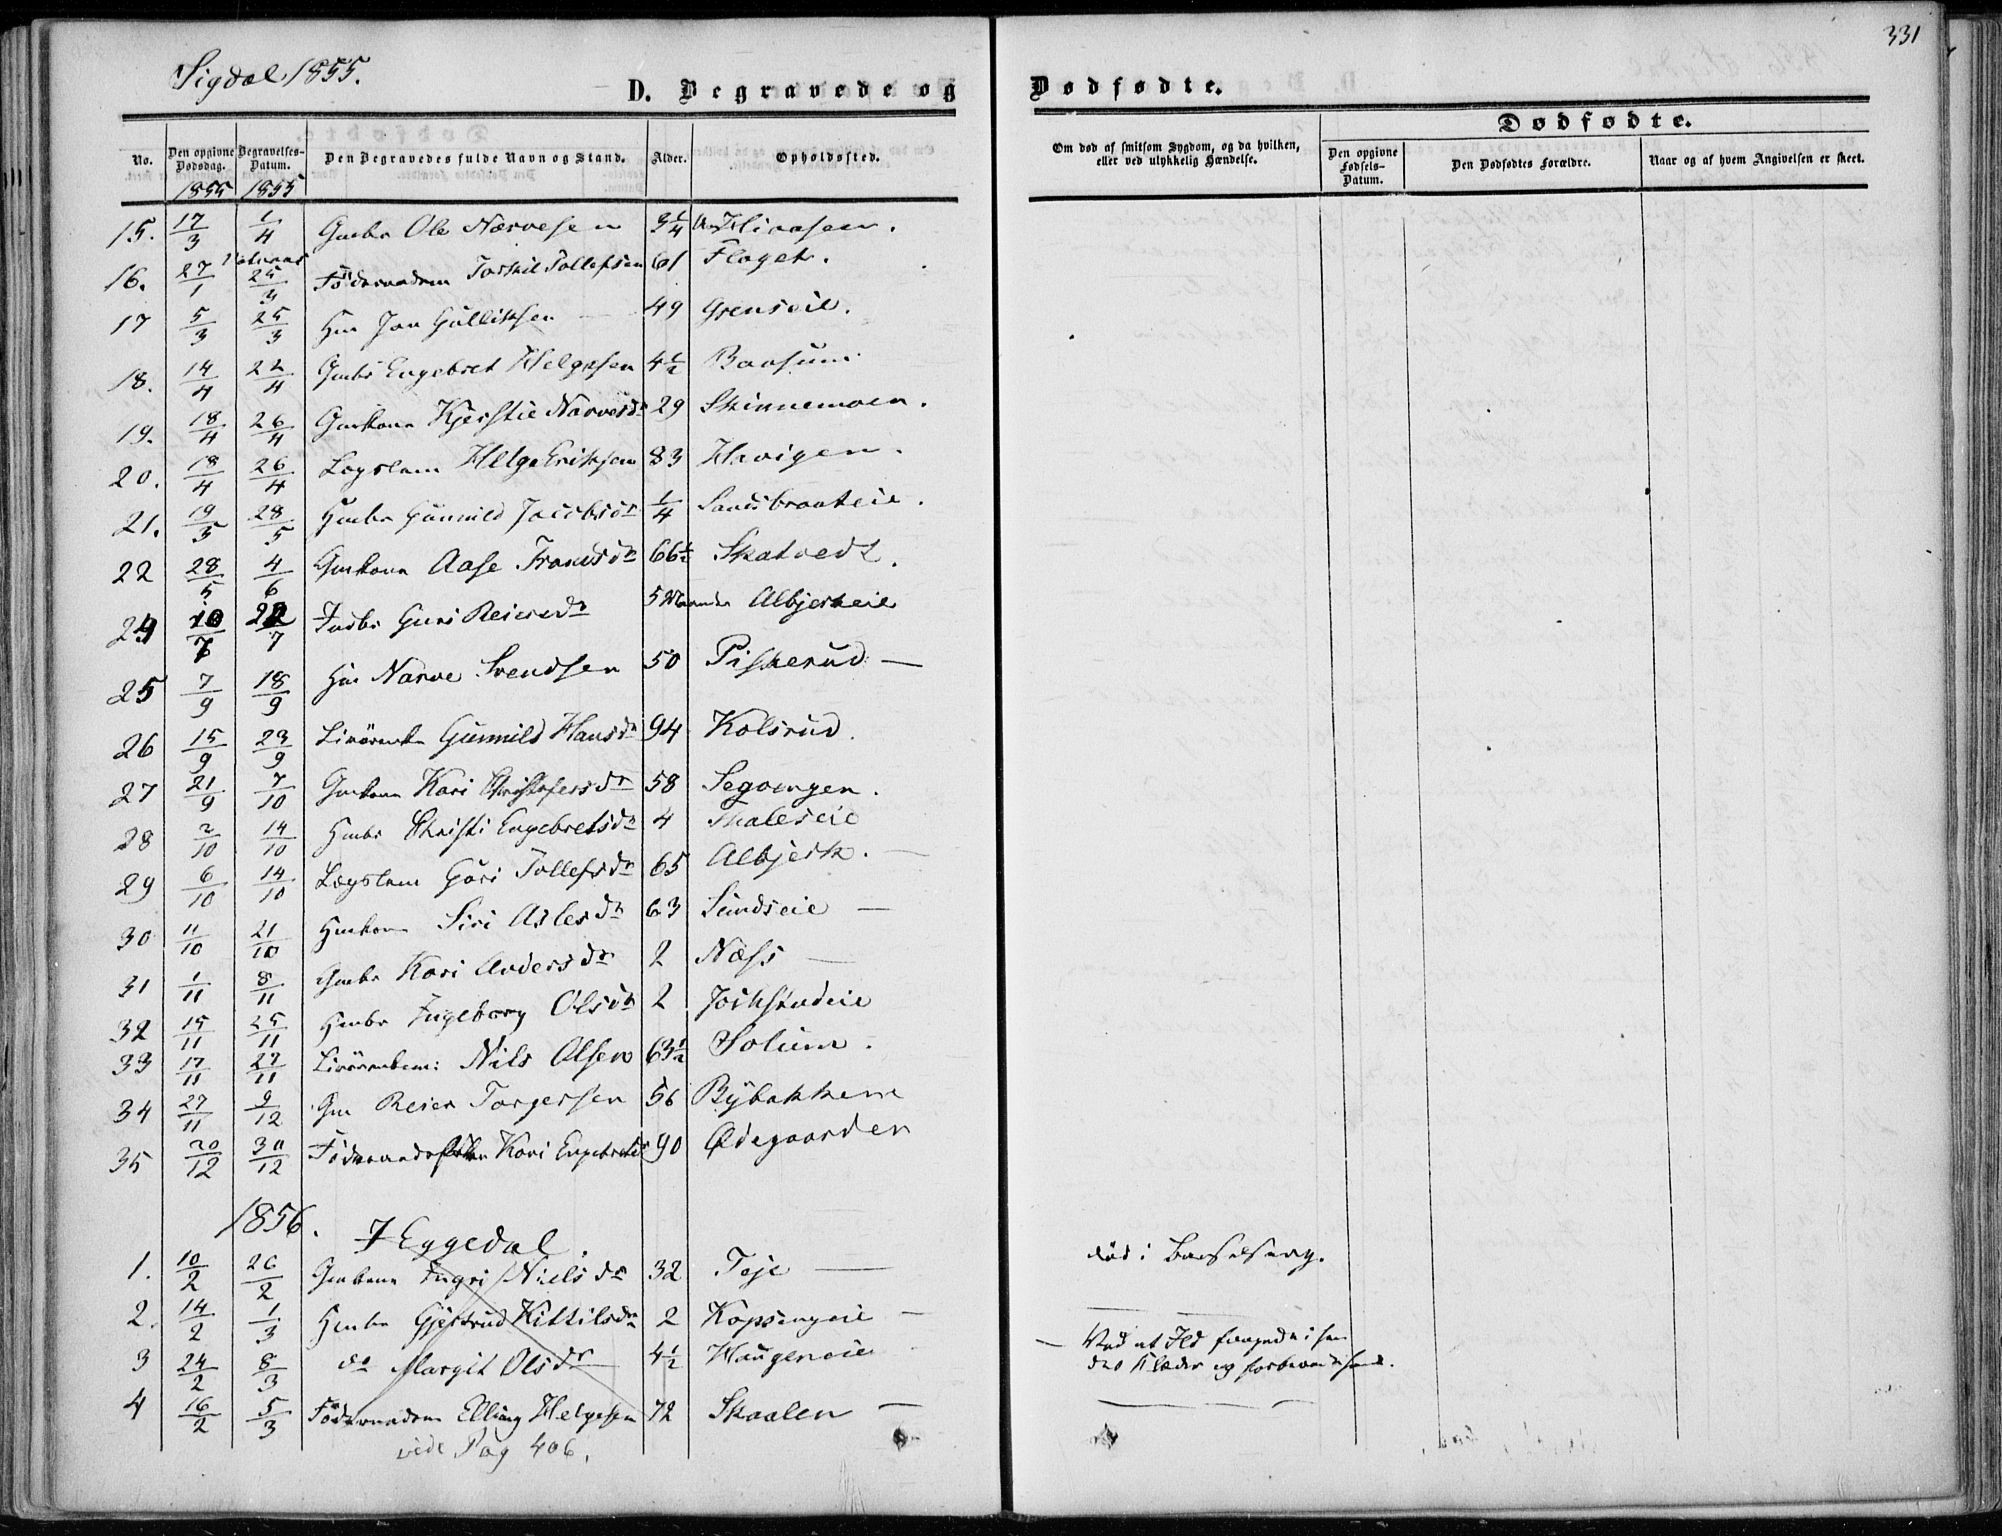 331
Sigdal 1855.
D. Begravede og Dødfødte.
Dødfødte.
No. Den opgivne Dødsdag. Begravelses-Datum. Den Begravedes fulde Navn og Stand. Alder. Opholdssted. Om død af smitsom Sygdom, og da hvilken, eller ved ulykkelig Hændelse. Den opgivne Fødsels-Datum. Den Dødfødtes Forældre. Naar og af hvem Angivelsen er skeet.
1855 1855
15. 17/3 1/4 Gmbr Ole Narvesen 3/4
16. 27/1 25/3 Föderaadsm Torkil Tollefsen 61 Flaget.
17 5/3 25/3 Hm Jon Gulliksen 49 Grenseie.
18. 14/4 22/4 Gmbr Engebret Helgesen 4½ Baasum
19. 18/4 26/4 Gmkone Kjerstie Narvesdr 29 Skinnemoen.
20. 18/4 26/4 Lægslem Helge Eriksen 83 Havigen.
21. 19/5 28/5 Hmbr Gunnild Jacobsdr ¼ Sandsbraateie.
22 28/5 4/6 Gmkone Aase Fransdr 66½ Skatvedt.
24 10/7 22/7 Indbr Guri Reiersdr 5 Maaneder Albjerkeie
25 7/9 18/9 Hm Narve Svendsen 50 Piskerud
26 15/9 23/9 Livörenke Gunnild Hansdr 94 Kolsrud.
27 21/9 7/10 Gmkone Kari Christofersdr 58 Segvingen.
28 2/10 14/10 Hmbr Christi Engebretsdr 4 Skaleseie
29 6/10 14/10 Lægslem Göri Tollefsdr 65 Albjerk.
30 11/10 21/10 Hmkone Siri Aslesdr 63 Sundseie
31 1/11 8/11 Gmbr Kari Andersdr 2 Næss
32 15/11 25/11 Hmbr Ingeborg Olsdr 2
33 17/11 27/11 Nils Olsen 63½ Solum.
34 27/11 9/12 Gm Reier Torgersen 56 Bybakken
35 20/12 30/12 Kari Engebretsdr 90 Ødegaarden
1856.
I Eggedal.
1. 10/2 26/2 Gmkone Ingri Nielsdr 32 Teje død i Barselseng.
2. 14/2 1/3 Hmbr Gjertrud Kittilsdr 2 Kopsengeie
3 24/2 8/3 do Margit Olsdr 4½ Haugeneie Ved at Ild fængede i hen
des Klæder og forbrændte hende.
4 16/2 5/3 Föderaadsm Elling Helgesen 72 Skaalen
vide Pag 406.